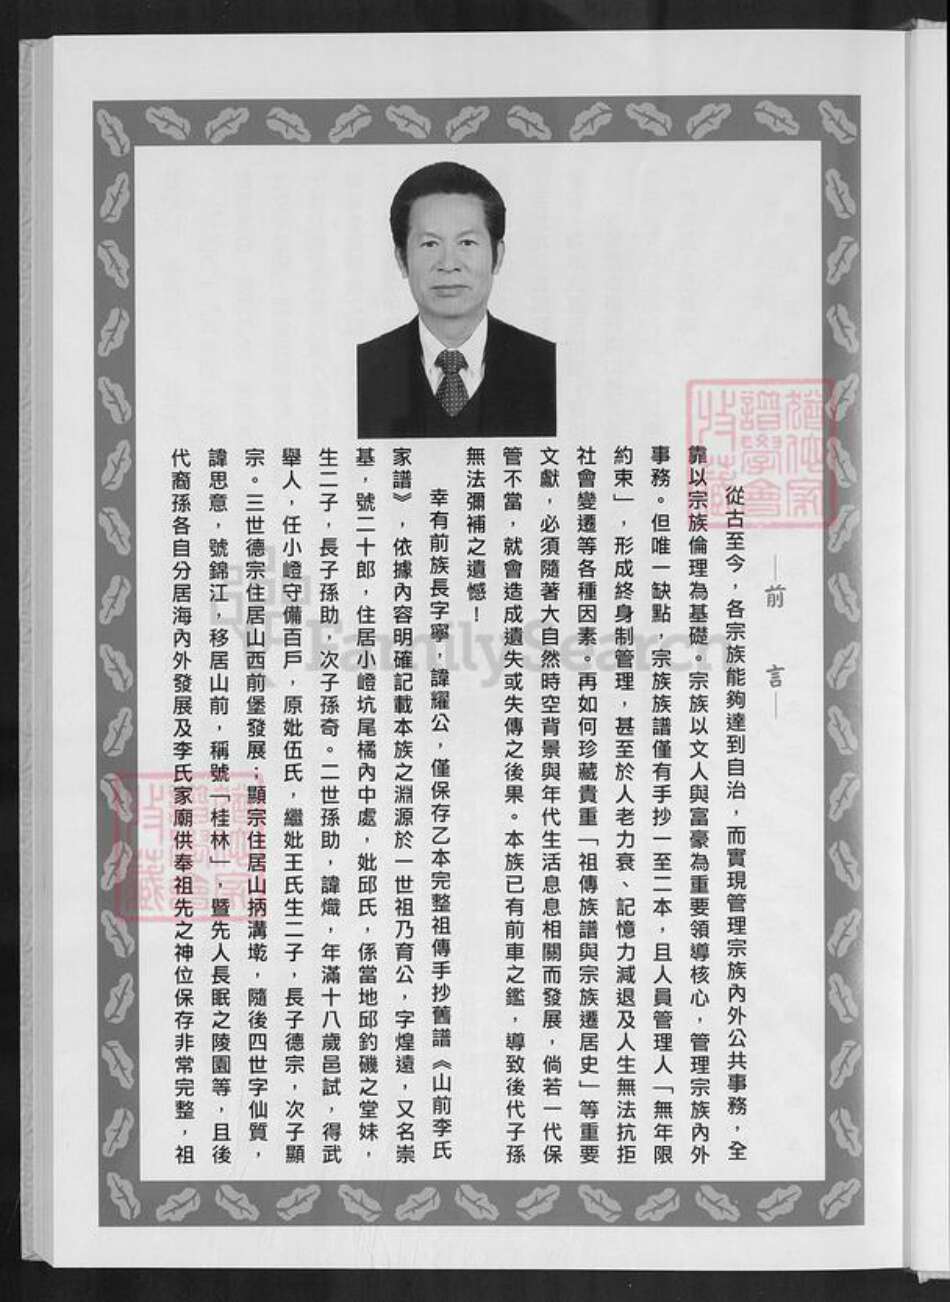 —前言—
從古至今，各宗族能夠達到自治，而實現管理宗族內外公共事務，全
靠以宗族倫理為基礎。宗族以文人與富豪為重要領導核心，管理宗族內外
事務。但唯一缺點，宗族族譜僅有手抄一至二本，且人員管理人「無年限
約束」，形成終身制管理，甚至於人老力衰、記憶力減退及人生無法抗拒
社會變遷等各種因素。再如何珍藏貴重「祖傳族譜與宗族遷居史」等重要
文獻，必須隨著大自然時空背景與年代生活息息相關而發展，倘若一代保
管不當，就會造成遺失或失傳之後果。本族已有前車之鑑，導致後代子孫
無法彌補之遺憾！
幸有前族長字寧，諱耀公，僅保存乙本完整祖傳手抄舊譜《山前李氏
家譜》，依據內容明確記載本族之淵源於一世祖乃育公，字煌遠，又名崇
基，號二十郎，住居小嶝坑尾橘內中處，妣邱氏，係當地邱釣磯之堂妹，
生二子，長子孫助，次子孫奇。二世孫助，諱熾，年滿十八歲邑試，得武
舉人，任小嶝守備百戶，原妣伍氏，繼妣王氏生二子，長子德宗，次子顯
宗。三世德宗住居山西前堡發展；顯宗住居山柄溝墘，隨後四世字仙質，
諱思意，號錦江，移居山前，稱號「桂林」，暨先人長眠之陵園等，且後
代裔孫各自分居海內外發展及李氏家廟供奉祖先之神位保存非常完整，祖
FamilySearch